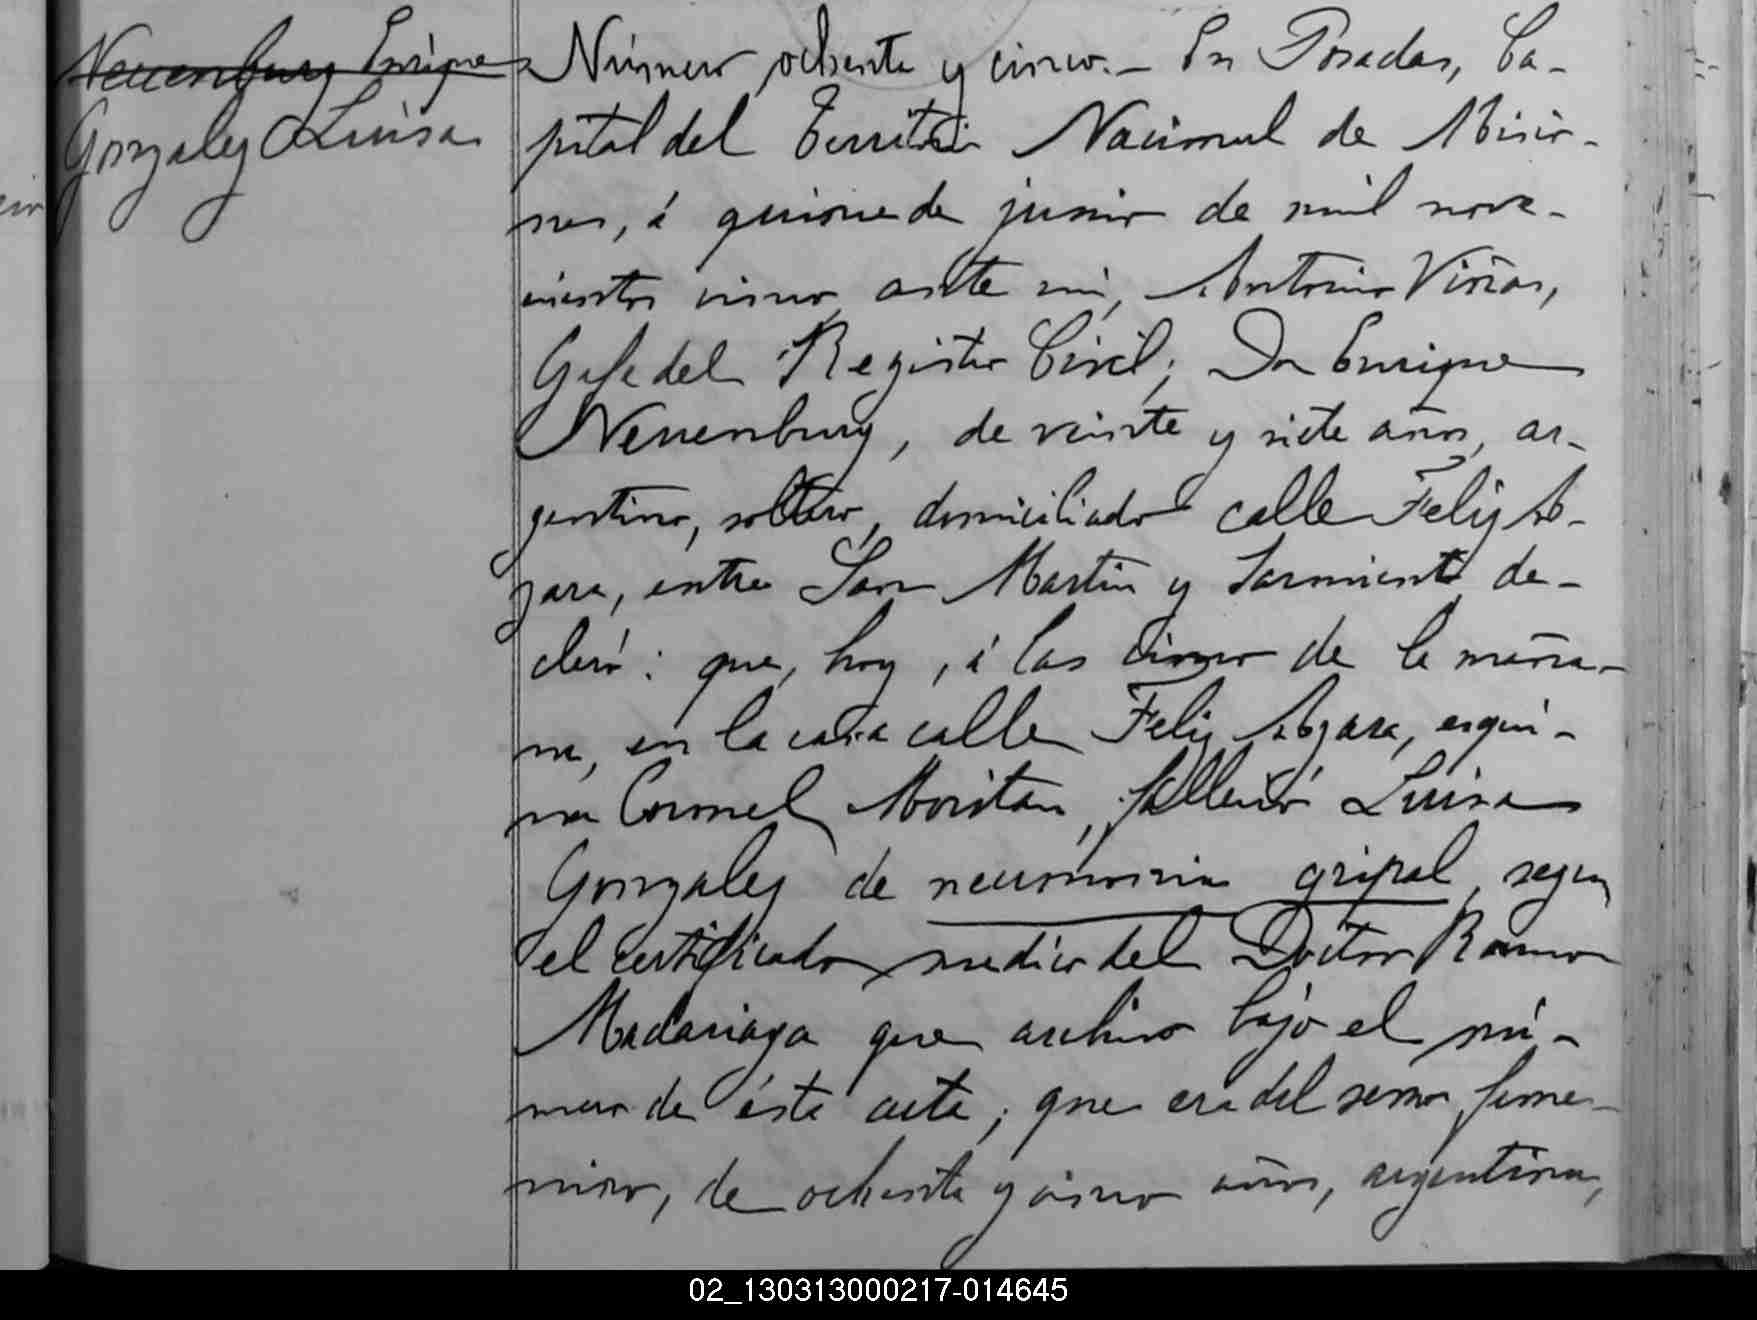 Neuenburg Enrique
Gonzalez Luisa
Número ochenta y cinco.- En Posadas, Ca-
pital del Territorio Nacional de Misio-
nes, á quince de junio de mil nove-
cientos cinco, ante mi, Antonio Viñas,
Gefe del Registro Civil; Don Enrique
Neuenburg, de veinte y siete años, ar-
gentino, soltero, domiciliado calle Feliz A-
zara, entre San Martin y Sarmiento de-
claró: que, hoy, á las cinco de la maña-
na, en la casa calle Feliz Azara, esqui-
na Coronel Moritan, falleció Luisa
Gonzalez de neumonia gripal, segun
el certificado medico del Doctor Ramon
Madariaga que archivo bajo el nú-
mero de ésta acta; que era del sexo feme-
nino, de ochenta y cinco años, argentina,
02_130313000217-014645